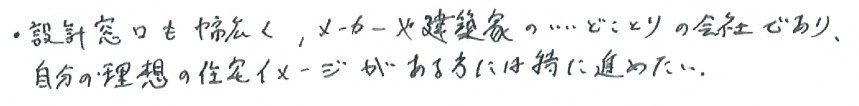 ・設計窓口も幅広く,メーカーや建築家の‥‥どことりの会社であり、
自分の理想の住宅イメージがある方には特に進めたい.